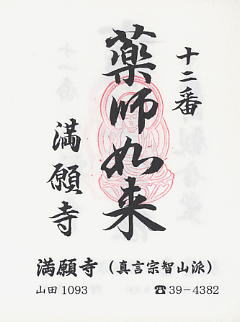 十二番
薬師如来
満願寺
満願寺（真言宗智山派）
山田1093 ☎39-4382